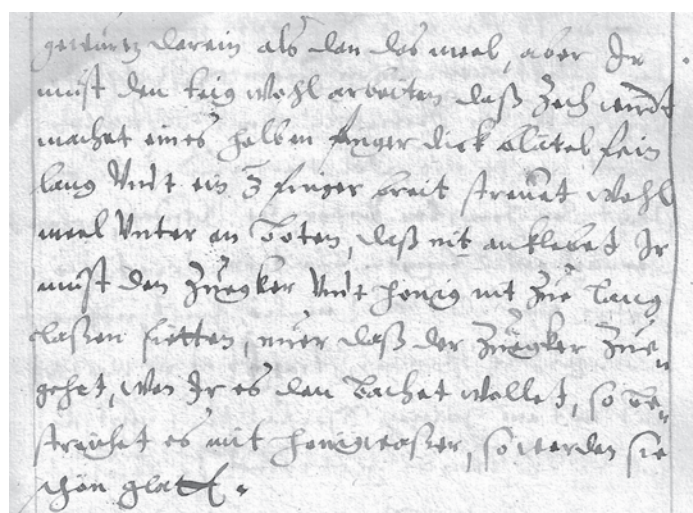 gewürtz darein als dan das meel, aber Ir
müst den teig wohl arbeiten daß Zech wirdt
machet eines halben finger dick blätel fein
lang Vndt ein 3 finger breit streüet wohl
meel Vnter an boten, daß nit anklebet Ir
müst den Zuegker Vndt honig nit Zue lang
laßen sietten, nuer daß der Zuegker Zuer¬
gehet, wen Ir es dan bachet wollet, so be¬
streichet es mit honigwaßer, so werden sie
schön glatt.